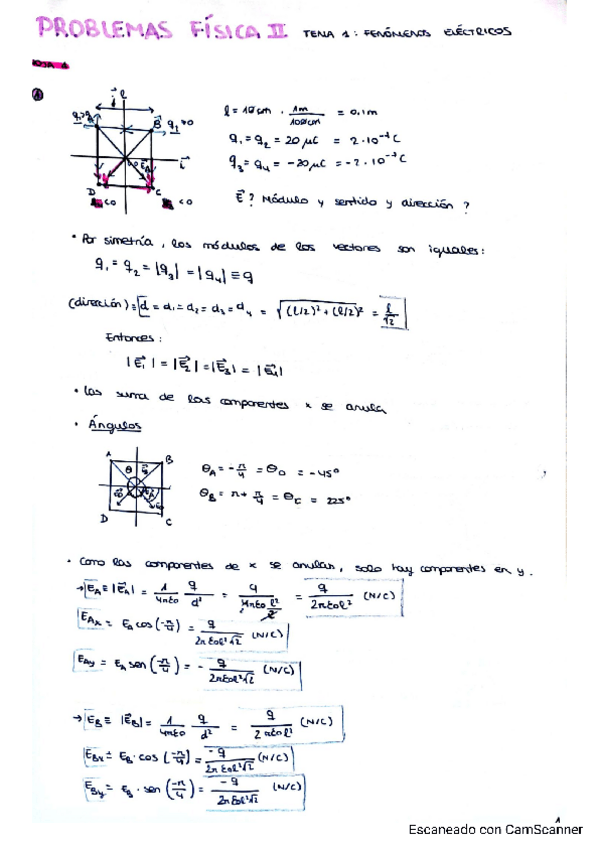 PROBLEMAS FÍSICA II TEMA 1: FENÓMENOS ELÉCTRICOS
HOJA 1
①
l = 10 cm · 1m/100cm = 0.1m
q₁ = q₂ = 20 μC = 2·10⁻⁵ C
q₃ = q₄ = -20 μC = -2·10⁻⁵ C
E⃗? Módulo y sentido y dirección?
• Por simetría, los módulos de los vectores son iguales:
q₁ = q₂ = |q₃| = |q₄| ≡ q
(dirección) = d = d₁ = d₂ = d₃ = d₄ = √((l/2)² + (l/2)²) = l/√2
Entonces:
|E⃗₁| = |E⃗₂| = |E⃗₃| = |E⃗₄|
• Las suma de las componentes x se anula
• Ángulos
A B
D C
θA = -π/4 = θD = -45°
θB = π + π/4 = θC = 225°
• Como las componentes de x se anulan, solo hay componentes en y.
→ EA ≡ |E⃗A| = 1/4πε0 q/d² = q/4πε0 l²/2 = q/2πε0l² (N/C)
EAx = EA cos(-π/4) = q/2πε0l²√2 (N/C)
EAy = EA sen(-π/4) = - q/2πε0l²√2 (N/C)
→ EB ≡ |E⃗B| = 1/4πε0 q/d² = q/2πε0l² (N/C)
EBx = EB · cos(-π/4) = -q/2πε0l²√2 (N/C)
EBy = EB · sen(-π/4) = -q/2πε0l²√2 (N/C)
1
Escaneado con CamScanner